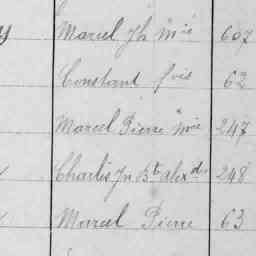 Marcel Jh Mie 607
Constant fois 62
Marcel Pierre Mie 247
Charlis Jn Bte Alexdre 248
Marcel Pierre 63